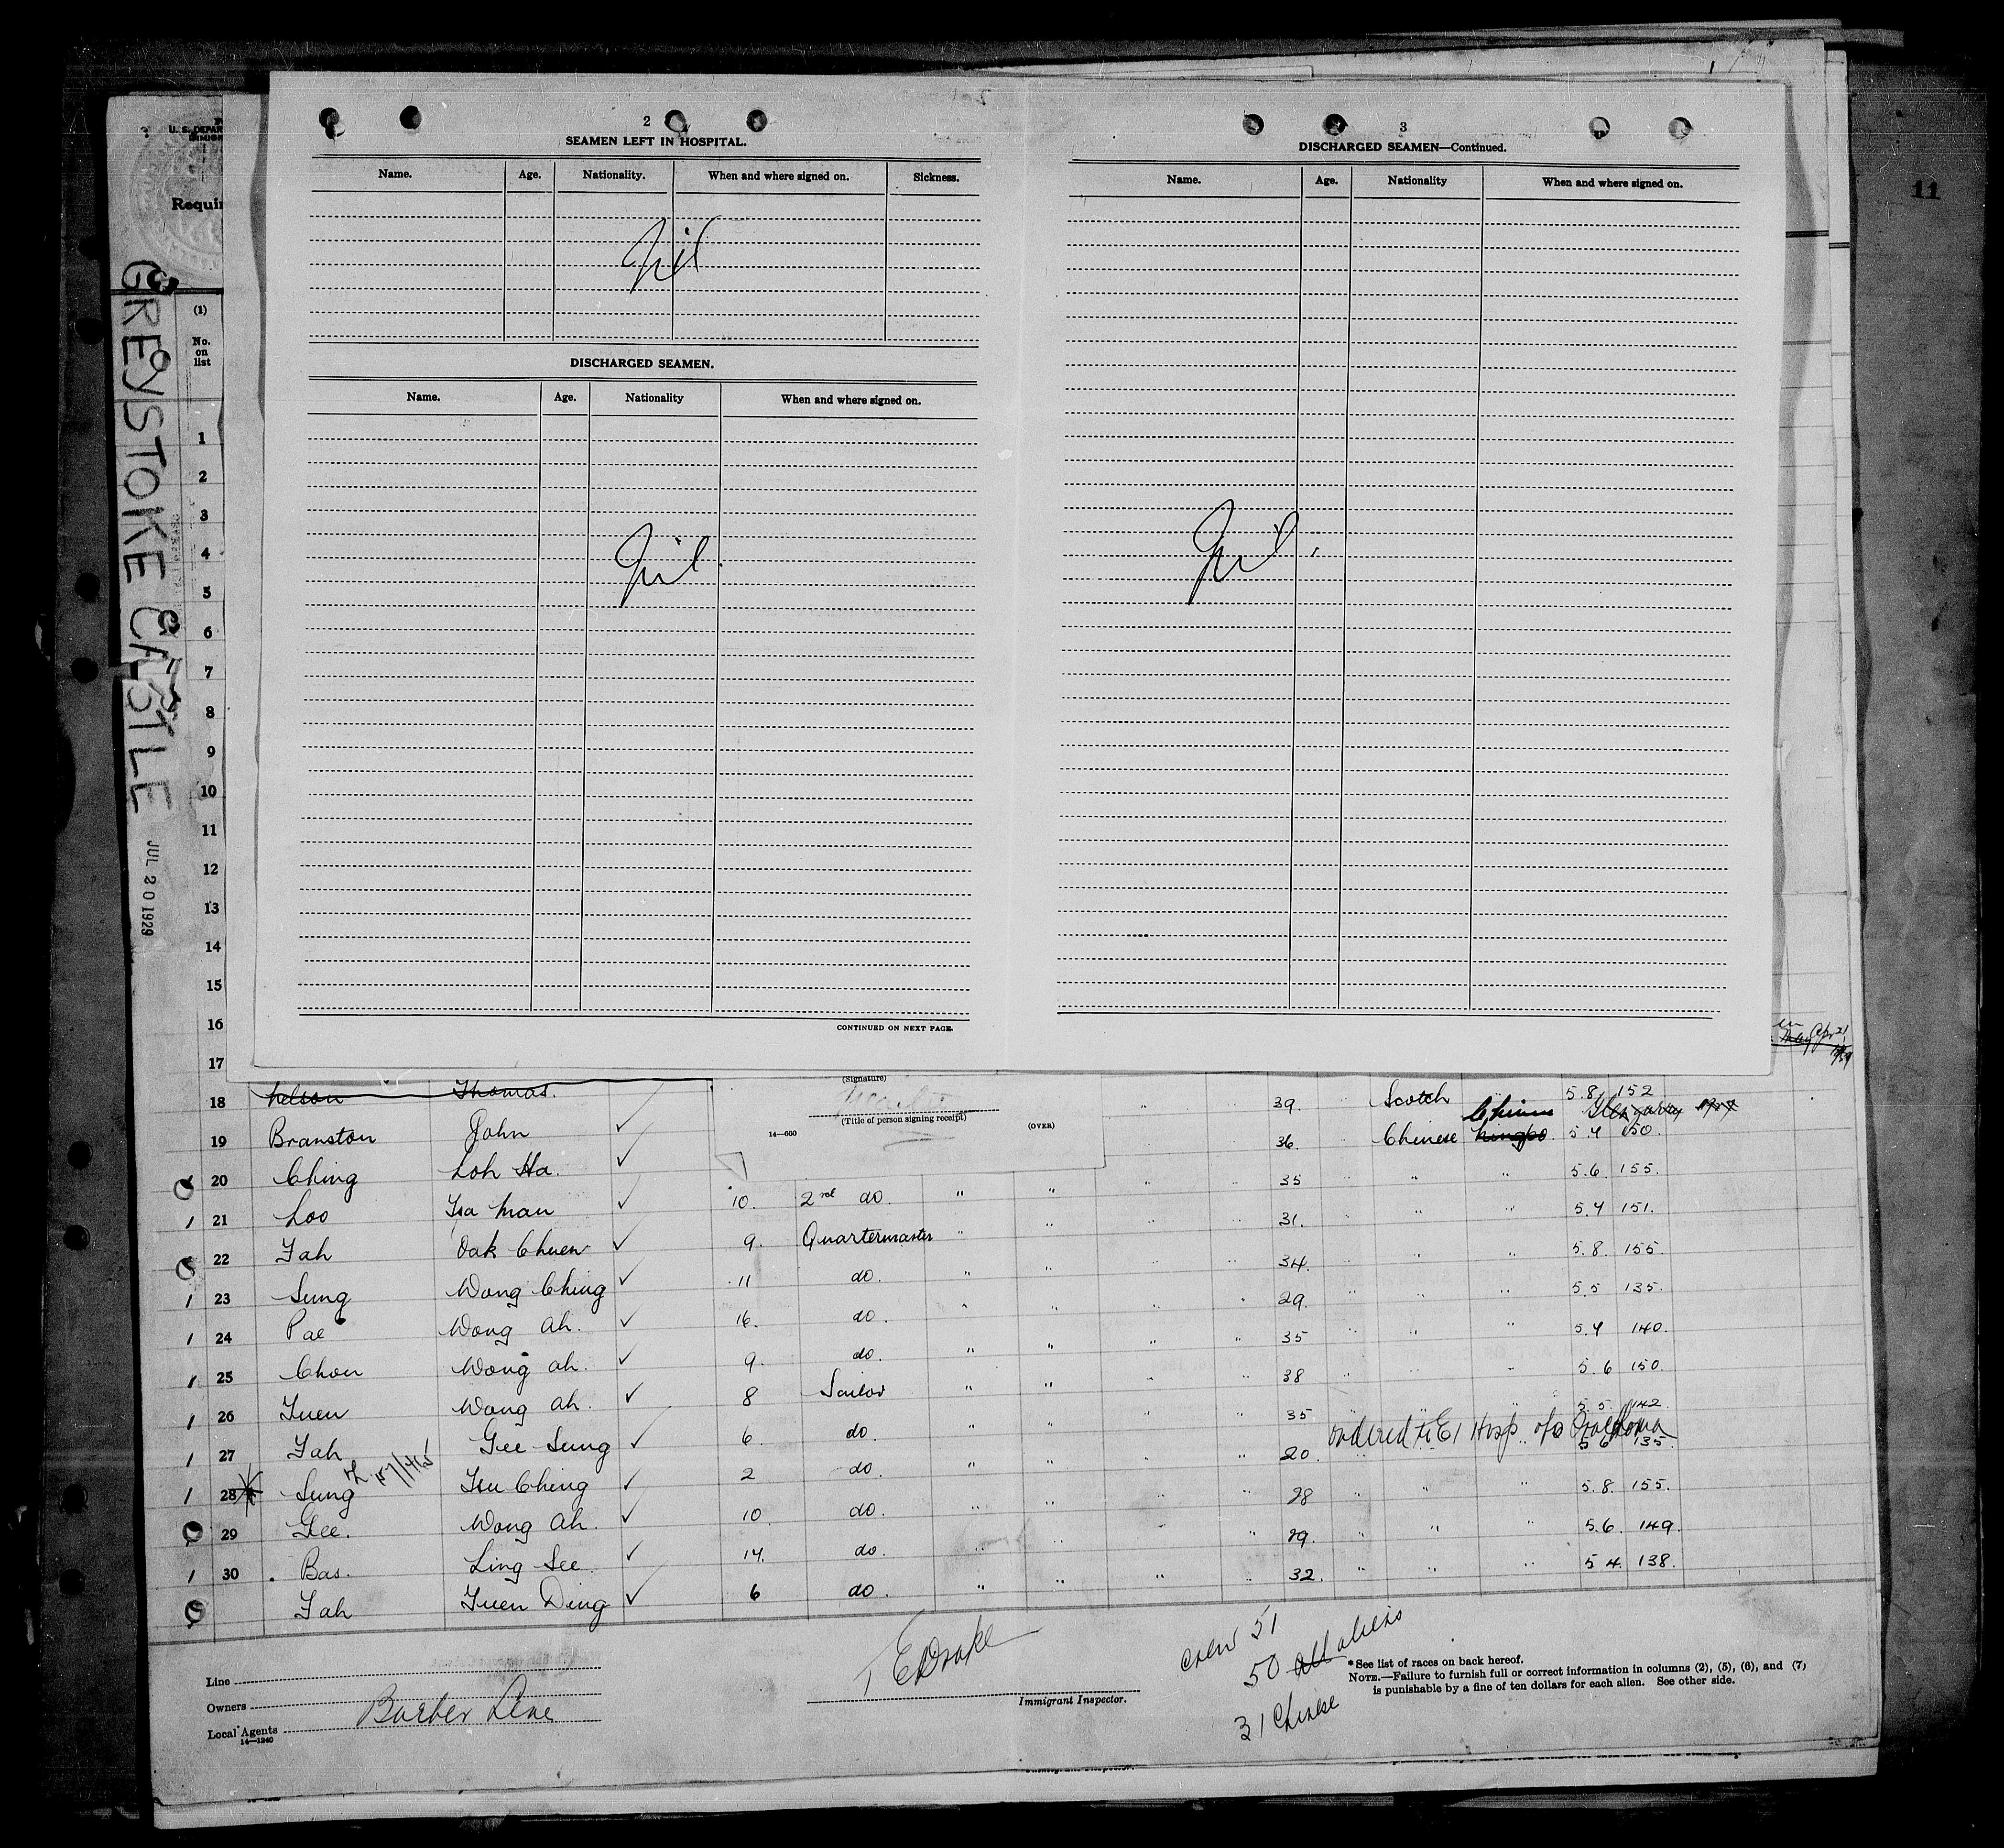 2
SEAMEN LEFT IN HOSPITAL.
Name. Age. Nationality. When and where signed on. Sickness.
Nil
DISCHARGED SEAMEN.
Name. Age. Nationality When and where signed on.
Nil.
CONTINUED ON NEXT PAGE.
3
DISCHARGED SEAMEN—Continued.
Name. Age. Nationality When and where signed on.
Nil.
11
U. S. DEPAR
IMMIG
Requir
GREYSTOKE CASTLE
JUL 20 1929
(1)
No.
on
list
1
2
3
4
5
6
7
8
9
10
11
12
13
14
15
16
17
(Signature)
(Title of person signing receipt)
14—660
(OVER)
18 Nelson Thomas. 39. Scotch 5.8 152
19 Branston John ✓ 36. Chinese 5.4 150.
20 Ching Loh Ha. ✓ 35 " " 5.6. 155.
21 Loo Tsa Man ✓ 10. 2nd do. " " 31. " " 5.4 151.
22 Yah Oak Chuen ✓ 9. Quartermaster " " 34. " " 5.8. 155.
23 Sung Wong Ching ✓ 11 do. " " 29. " " 5.5 135.
24 Pae Wong Ah. ✓ 16. do. " " 35 " " 5.4 140.
25 Chou Wong Ah. ✓ 9. do. " " 38 " " 5.6 150.
26 Yuen Wong Ah. ✓ 8 Sailor " " 35 " " 5.5. 142
ordered to EI Hosp
27 Yah Gee Sung ✓ 6. do. " " 20. " " 5.6 135.
28 Sung Tsu Ching ✓ 2 do. " " 28 " " 5.8. 155.
29 Gee. Wong Ah. ✓ 10. do. " " 29. " " 5.6. 149.
30 Bas. Ling See ✓ 14. do. " " 32. " " 5.4. 138.
Yah Yuen Ding ✓ 6 do. " "
Line
Owners
Local Agents Barber Line
14—1240
T E Drake
Immigrant Inspector.
Crew 51
50 all aliens
31 Chinese
*See list of races on back hereof.
NOTE.—Failure to furnish full or correct information in columns (2), (5), (6), and (7)
is punishable by a fine of ten dollars for each alien. See other side.